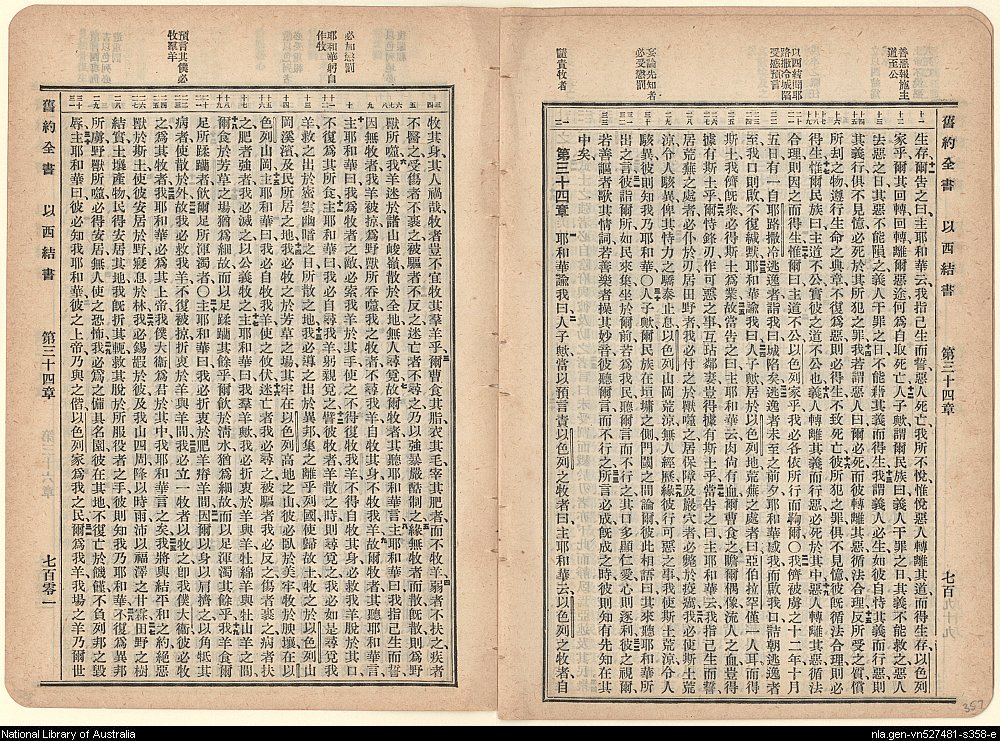 舊約全書 以西結書 第三十四章 七百
善惡報施主
道至公
以西結聞耶
路撒冷城陷
受感預言
妄論先知者
必受懲罰
譴責牧者
生存爾告之曰主耶和華云我指己生而誓惡人死亡我所不悅惟悅惡人轉離其道而得生存以色列
家乎爾其回轉回轉離爾惡途何爲自取死亡人子歟謂爾民族曰義人干罪之日其義不能救之惡人
去惡之日其惡不能隕之義人干罪之日不能藉其義而得生我謂義人必生如彼自恃其義而行惡則
其義行俱不見憶必死於其所犯之罪我若謂惡人曰爾必死而彼轉離其惡循法合理反所受之質償
所刦之物遵行生命之典章不復爲惡則必得生不致死亡彼所犯之罪俱不見憶彼旣循法合理則必
得生惟爾民族曰主道不公實彼之道不公也義人轉離其義而行惡必死於其中惡人轉離其惡循法
合理則因之而得生惟爾曰主道不公以色列家乎我必各依所行而鞫爾〇我儕被虜之十二年十月
五日有一自耶路撒冷逃逸者詣我曰城陷矣逃逸者未至之前夕耶和華感我而啟我口詰朝逃逸者
至我口則啟不復緘默耶和華諭我曰人子歟居於以色列地荒蕪之處者曰亞伯拉罕僅一人耳而得
斯土我儕旣衆必得斯土爲業故當告之曰主耶和華云肉尚有血爾曹食之瞻爾偶像流人之血豈得
據有斯土乎爾恃鋒刃作可惡之事互玷鄰妻豈得據有斯土乎當告之曰主耶和華云我指己生而誓
居荒蕪之處者必仆於刃居田野者我必付之於獸噬之居保障及巖穴者必斃於疫癘我必使斯土荒
涼令人駭異俾其恃力之驕泰止息以色列山岡荒蕪無人經歷緣彼行可惡之事我使斯土荒涼令人
駭異彼則知我乃耶和華〇人子歟爾民族在垣墉之側門闑之間論爾彼此相語曰其來聽耶和華所
出之言彼詣爾所如民來集坐於爾前若爲我民聽爾言而不行之其口多顯仁愛心則逐利彼之視爾
若善謳者歌其情詞若善樂者操其妙音彼聽爾言而不行之所言必成旣成之時彼則知有先知在其
中矣
第三十四章 耶和華諭我曰人子歟當以預言責以色列之牧者曰主耶和華云以色列之牧者自
357
必加懲罰
耶和華躬自
作牧
預言其僕必
牧羣羊
牧其身其人禍哉牧者豈不宜牧其羣羊乎爾曹食其脂衣其毛宰其肥者而不牧羊弱者不扶之疾者
不醫之受傷者不裹之被驅者不返之迷亡者不尋之乃以強暴嚴酷制之緣無牧者而散旣散則爲野
獸所噬我羊迷於諸山峻嶺散於全地無人尋覓故爾牧者其聽耶和華言主耶和華曰我指己生而誓
因無牧者我羊被掠爲野獸所吞噬我之牧者不尋我羊自牧其身不牧我羊故爾牧者其聽耶和華言
主耶和華曰我爲牧者之敵必索我羊於其手使之不得復牧我羊不得自牧其身必救我羊脫於其口
不復爲其所食主耶和華曰我必自尋我羊躬親覓之譬彼牧者羊散之時則尋覓之我必如是尋覓我
羊救之出於密雲幽暗之日所散之地我必導之出於異邦集之離乎列國使歸故土牧之於以色列山
岡溪濱及民所居之地我必牧之於芳草之場其牢在以色列高地之山彼必臥於美牢牧於腴壤在以
色列山岡主耶和華曰我必自牧我羊使之攸伏迷亡者我必尋之被驅者我必返之傷者裹之病者扶
之肥者強者我必滅之以公義牧之主耶和華曰我羊歟我必折衷於羊與羊牡綿羊與牡山羊之間
爾食於芳草之場猶爲細故而以足蹂躪其餘乎爾飲於清水猶爲細故而以足渾濁其餘乎我羊食爾
足所蹂躪者飲爾足所渾濁者〇主耶和華曰我必折衷於肥羊瘠羊間因爾以身以肩擠之以角牴其
病者使散於外故我必救我羊不復被掠折衷於羊與羊間我必立一牧者以牧之卽我僕大衞彼必牧
之爲其牧者我耶和華必爲其上帝我僕大衞爲君於其中我耶和華言之矣我將與結平和之約絕惡
獸於斯土使彼安居於野寢息於林我必錫嘏於彼及我山四周降以時雨沛以福澤之甘霖田野之樹
結實土壤產物民得安居其地我旣折其軛救其脫於所服役者之手彼則知我乃耶和華不復爲異邦
所虜野獸所噬必得安居無人使之恐怖我必爲之備具名園彼在其地不復亡於饑饉不負列邦之毀
辱主耶和華曰彼必知我耶和華彼之上帝乃與之偕以色列家爲我之民爾爲我羊我場之羊乃爾世
舊約全書 以西結書 第三十四章 七百零一
National Library of Australia
nla.gen-vn527481-s358-e